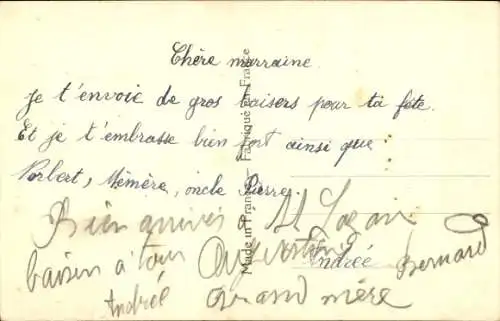 Chère marraine
Je t'envoie de gros baisers pour ta fête.
Et je t'embrasse bien fort ainsi que
Norbert, Mémère, oncle Pierre.
Bien arrivés
baisers à tous
Andrée
Bernard
Andrée
Grand mère
Made in France — Fabriqué en France